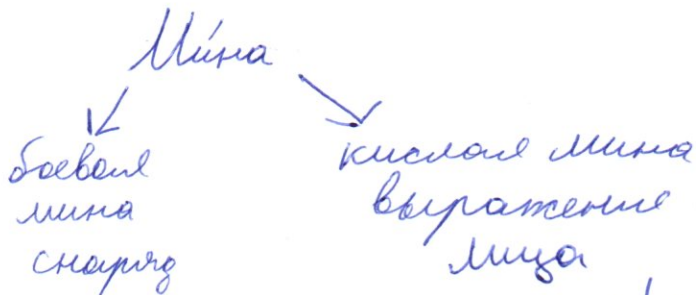 Ми́на
боевая
мина
снаряд
кислая мина
выражение
лица